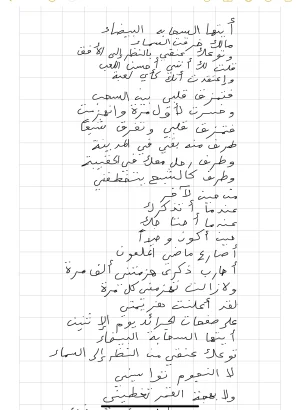 أيتها السحابة البيضاء
مالك خرقت السماء
وتوعك عنقي بالنظر إلى الأفق
قلت لك أنني أحسن اللعب
واعتقدت أنك كأي لعبة
فتمزق قلبي بين السحب
وخسرت لأول مرة وانهزمت
فتمزق قلبي وتفرق شيعاً
طرف منه بقي في المدينة
وطرف رحل معك في الحقيبة
وطرف كالشبح يتخطفني
من حين لآخر
عندما أتذكرك
عندما أحتاجك
حين أكون وحيداً
أصارع ماضي
أحارب ذكرى هزمتني ألف مرة
ولازالت تهزمني كل مرة
لقد أعلنت هزيمتي
على صفحات الجرائد يوم الإثنين
أيتها السحابة البيضاء
توعك عنقي من النظر إلى السماء
لا النجوم تواسيني
ولا القمر